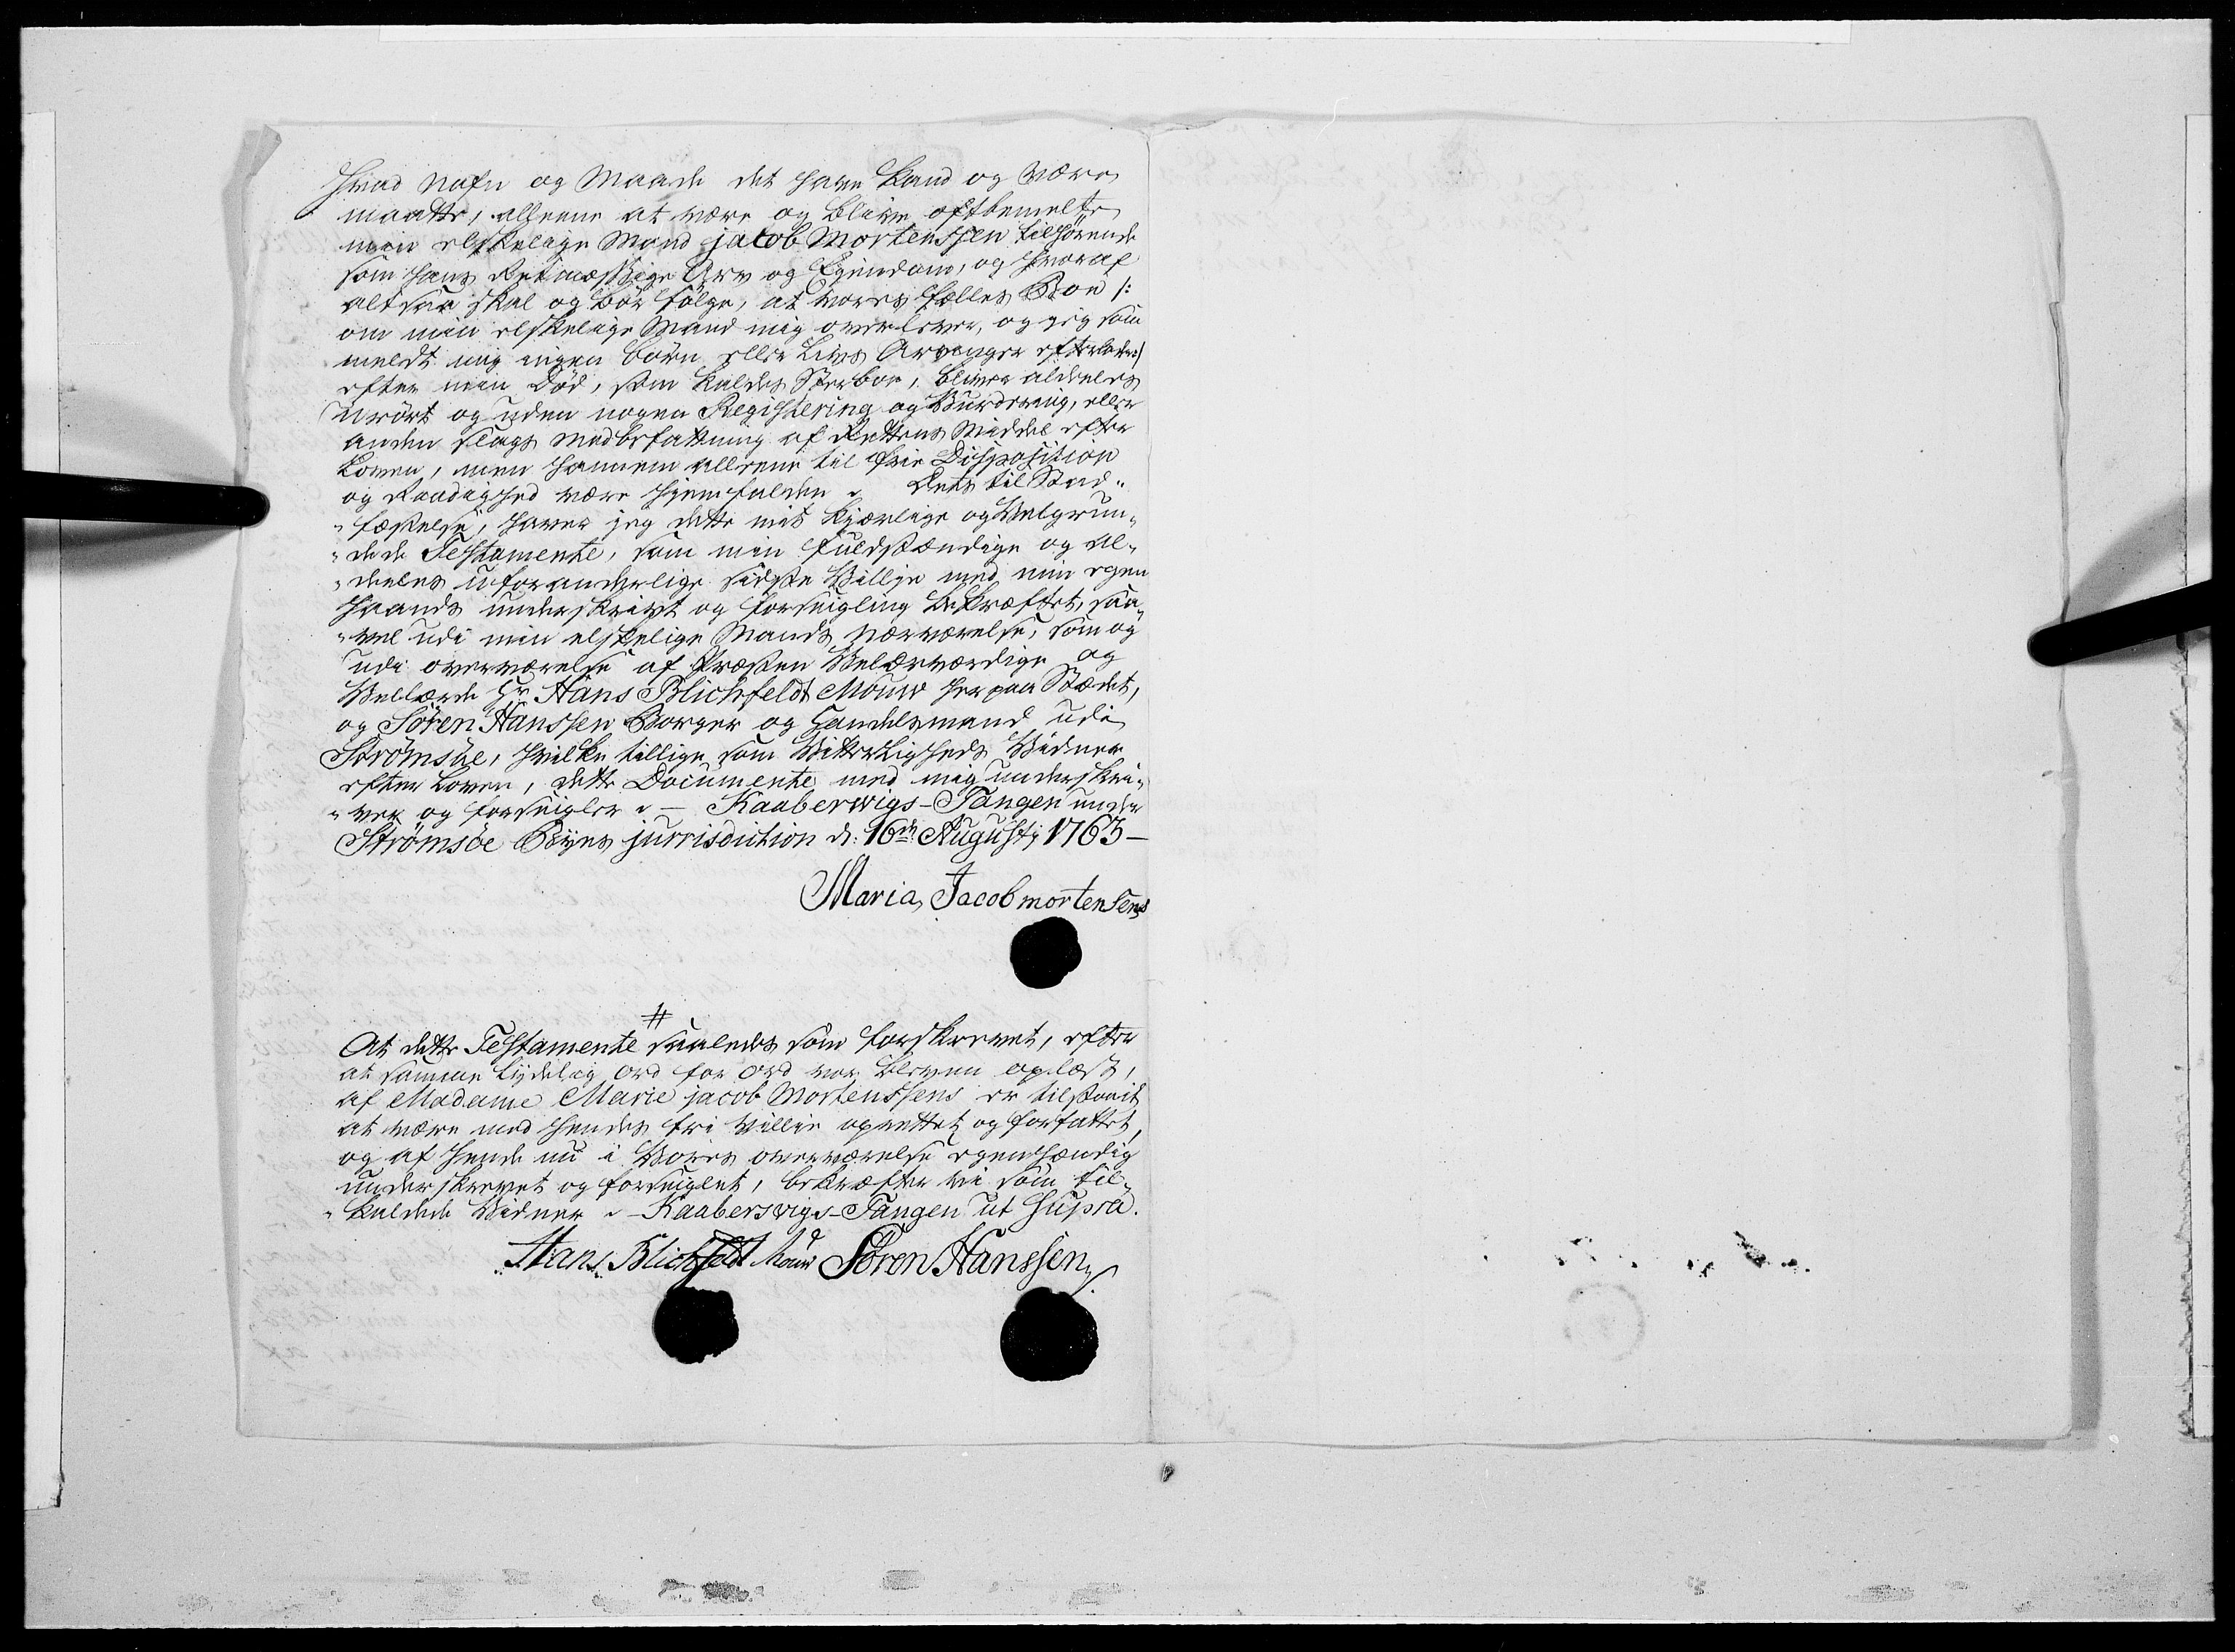 Hvad Nafn og Maade det have kand og være
maatte, alleene at være og blive oftbemelte
min elskelige Mand jacob Mortenssen tilhørende
som hans Retmæssige Arv og Eyendom, og hvoraf
altsaa skal og bör fölge, at vores fælles Boe /:
om min elskelige Mand mig overlever, og jeg som
meldt mig ingen börn eller Livs Arvinger efterlader :/
efter min Död, som kaldes Sterboe, bliver aldeeles
Urört og uden nogen Registering og Vurdering, eller
anden slags Medbefattning af Rettens Middel efter
Loven, men hannem alleene til frie Disposition
og Raadighed være hjemfalden. Dets til Stad„
„fæstelse, haver jeg dette mit kjærlige og Velgrun„
„dede Testamente, som min fuldstændige og Al„
„deeles uforanderlige sidste Villje med min egen
Haands underskrivt og forseigling bekræftet, saa„
„vel udi min elskelige Mands nærværelse, som og
udi overværelse af Præsten Velærværdige og
Vellærde Hr. Hans Blichfeldt Mouw her paa Stædet,
og Sören Hanssen Borger og Handelsmand udi
Strömsöe, hvilke tillige som Vitterligheds Vidner
efter Loven, dette Documente med mig underskri„
„ver og forseigler. — Kaaberwigs-Tangen under
Strömsöe Byes jurrisdiction d: 16de Augusti 1763 —
Maria Jacobmortensens
#
At dette Testamente saaledes som forskrevet, efter
at samme lydelig ord for ord var bleven oplæst,
af Madame Marie jacob Mortenssens er tilstaait
at være med hendes fri Villie oprettet og forfattet,
og af hende nu i Vores overværelse egenhændig
underskrevet og forseiglet, bekræfter vi som til„
„kaldede Vidner. — Kaaberswigs-Tangen ut Supra.
Hans Blichfeldt Mouw Sören Hanssen